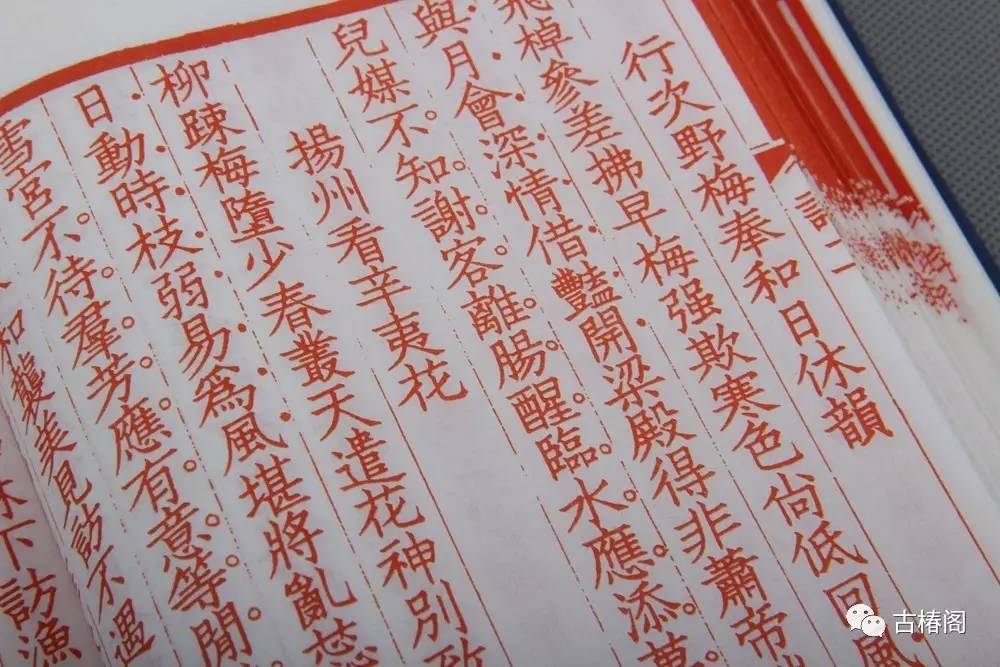 行次野梅奉和日休韻
飛棹參差拂早梅强欺寒色尚低回風
與月會深情借豔開梁殿得非蕭帝
兒媒不知謝客離腸醒臨水應添萬
揚州看辛夷花
柳踈梅墮少春叢天遣花神別致
日動時枝弱易爲風堪將亂蕊
雪宮不待羣芳應有意等閒
和襲美見訪不遇
休下訪漁
古椿阁